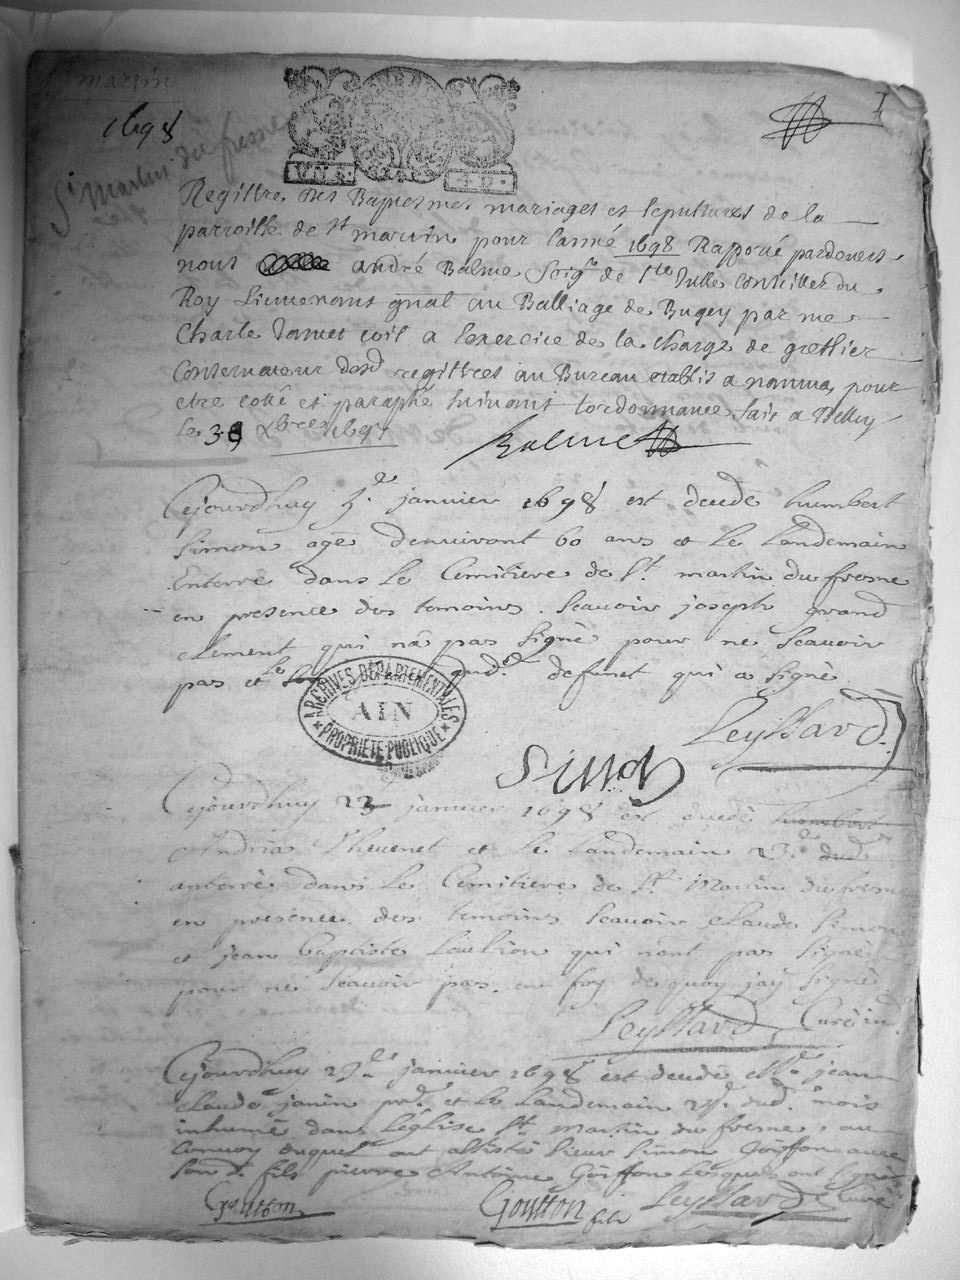 martin
1698
I
St Martin du fresne
Registre des Baptesmes mariages et sepultures de la
parroisse de St martin pour l'année 1698 Rapporté pardevers
nous André Balme Seigr de Ste Julle conseiller du
Roy Lieutenant gnal au Balliage de Bugey par me
Charle Jannet a l'exercice de la charge de greffier
Conservateur desd registres au Bureau establis a nantua pour
etre cotté et paraphé suivant l'ordonnance fait a Belley
le xbre 1697
Balme
Cejourdhuy janvier 1698 est decede humbert
Simon age denviront 60 ans et le landemain
Enterré dans le Cemitiere de St martin du fresne
en presence des temoins Scavoir joseph grand
clement qui na pas signé pour ne Scavoir
pas et le dud defunct qui a signé
Leyssard
ARCHIVES DÉPARTEMENTALES
AIN
PROPRIÉTÉ PUBLIQUE
Simon
Cejourdhuy 23 janvier 1698 est decedé
Andria Thevenet et le landemain dud
anterré dans le Cemitiere de St Martin du fresne
en presence des temoins Scavoir Claude Simon
et jean baptiste qui nont pas signé
pour ne Scavoir pas en foy de quoy jay signé
Leyssard Curé
Cejourdhuy janvier 1698 est decedé jean
claude janin et le landemain dud mois
inhumé dans l'église St Martin du fresne au
Convoy duquel ont assisté Sieur Simon Goiffon avec
Son fils pierre Antoine Goiffon lesquels ont signé
Goiffon
Goiffon fils
Leyssard Curé